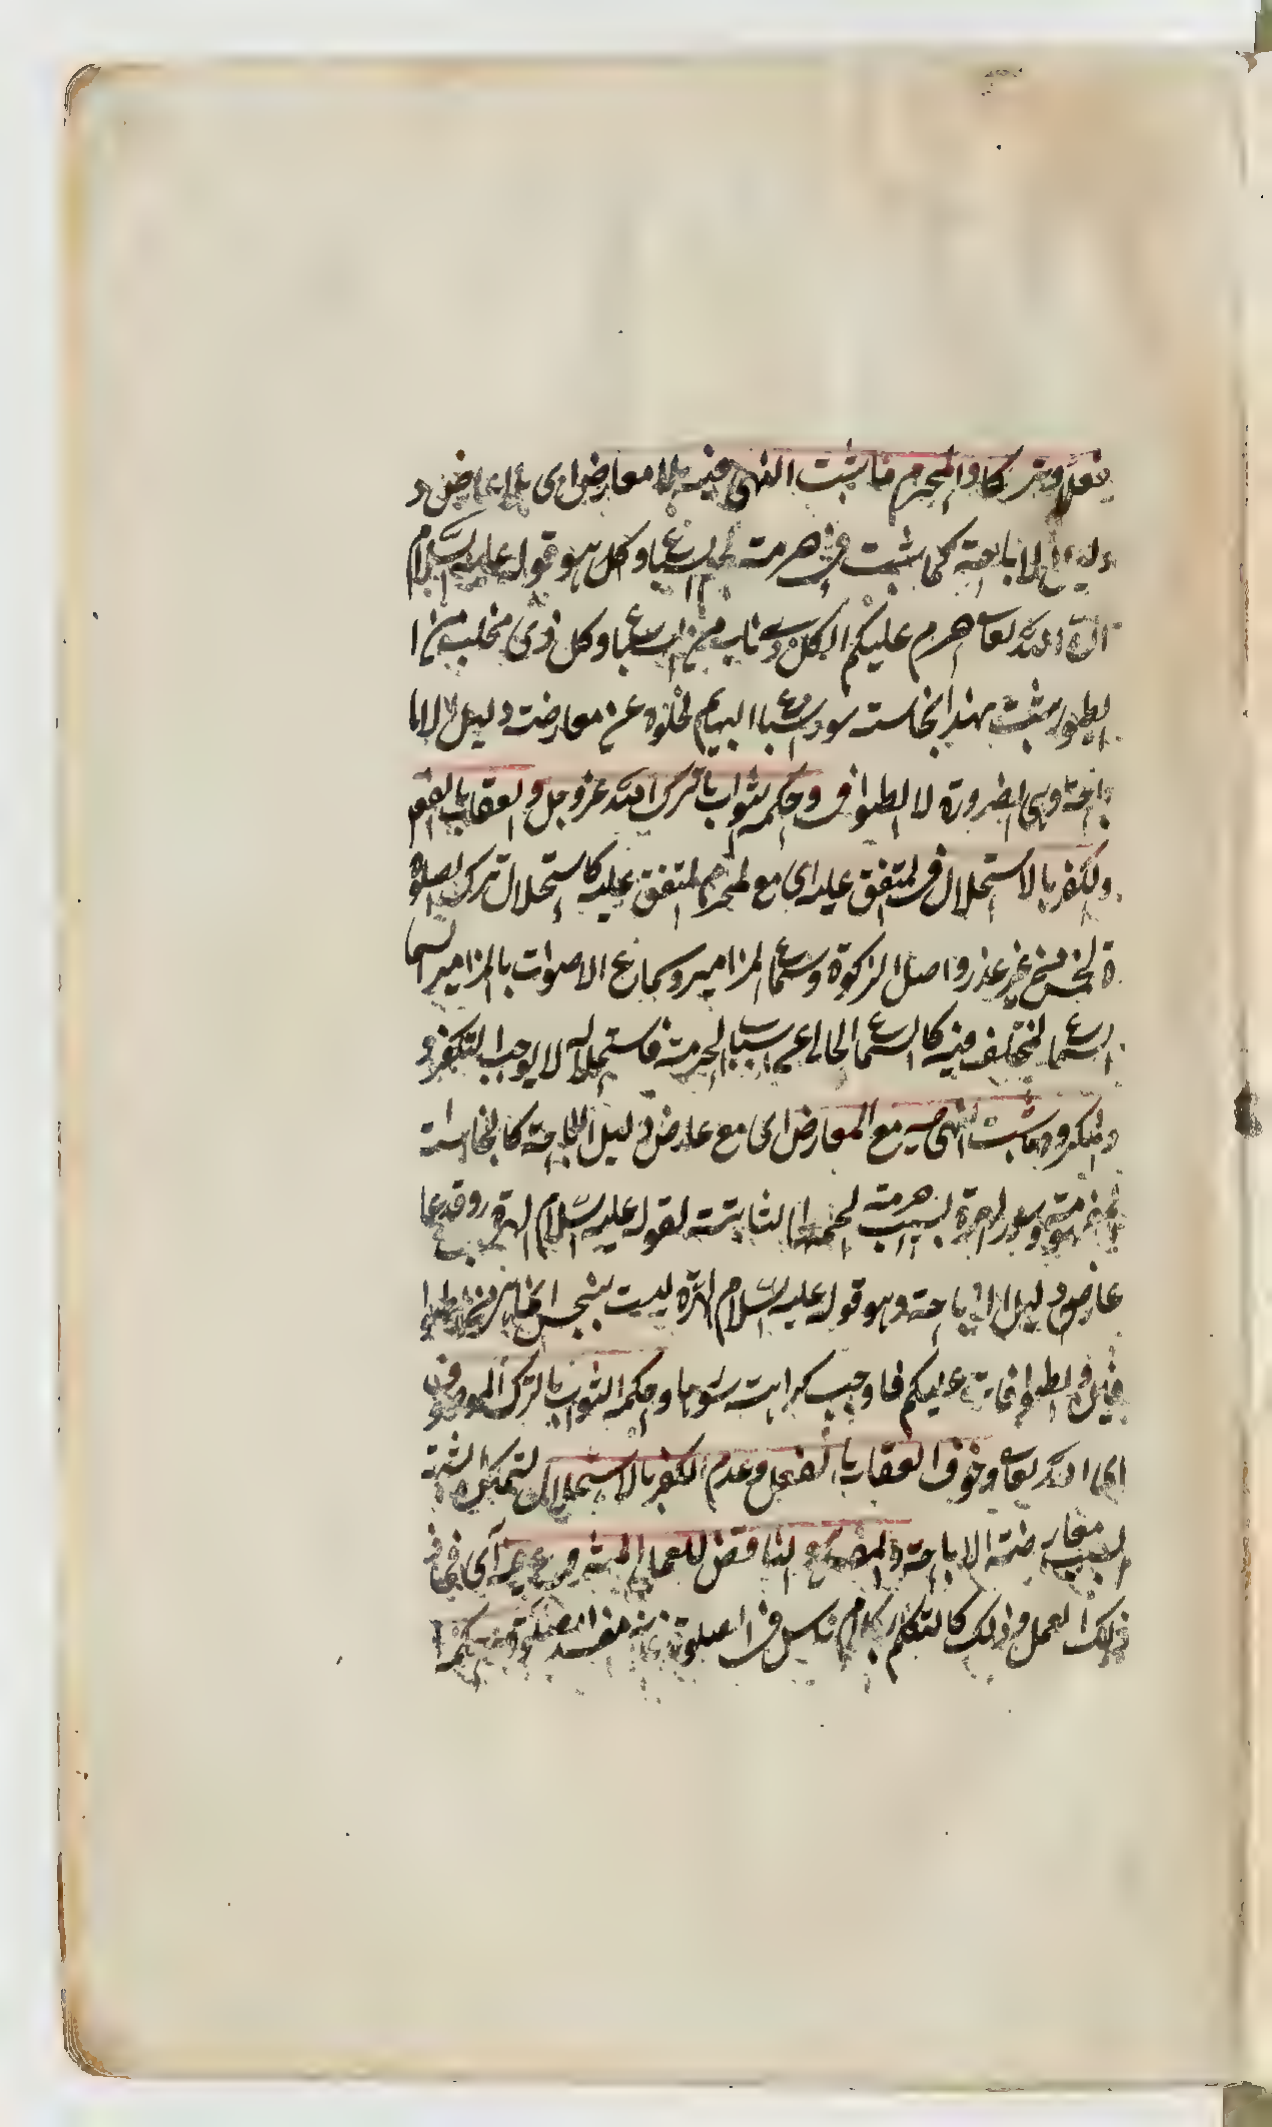 فعلا وتركا والمحرم ما ثبت النهى فيه بلا معارض اى بلا عارض د
دليل الاباحة كما ثبت فى حرمة لحم السباع وكل هو قوله عليه السلام
ان الله تعالى حرم عليكم اكل ذى ناب من السباع وكل ذى مخلب من ا
لطيور يثبت بهذا نجاست سور السباع البهايم لخلوه عن معارضت دليل الا
باحة وهى الضرورة لا الطواف وحكمه الثواب بالترك لله عز وجل والعقاب بالفعل
والكفر بالاستحلال فى المتفق عليه اى مع المحرم المتفق عليه كاستحلال ترك الصلو
ة الخمس من غير عذر واصل الزكوة وسماع المزامير وسماع الاصوات بالمزامير
السماع المختلف فيه كالسماع الخالى عن اسباب الحرمة فاستحلاله لا يوجب التكفر و
والمكروه ما ثبت النهى فيه مع المعارض اى مع عارض دليل الاباحة كالنجاست
سور الهرة بسبب حرمة لحمها الثابتة لقوله عليه السلام الهرة سبع وقد عا
عارض دليل الاباحة وهو قوله عليه السلام الهرة ليست بنجس انما هى من الطوا
فين والطوافات عليكم فاوجب كراهت سورها وحكمه الثواب بالترك
اى لله تعالى وخوف العقاب بالفعل وعدم الكفر بالاستحلال لتمكن الشبهة
بسبب معارضة الاباحة والمفسد هو الناقض للعمل المشروع فيه اى فى
ذلك العمل وذلك كالتكلم بكلام ناس فى الصلوة فانه مفسد للصلوة